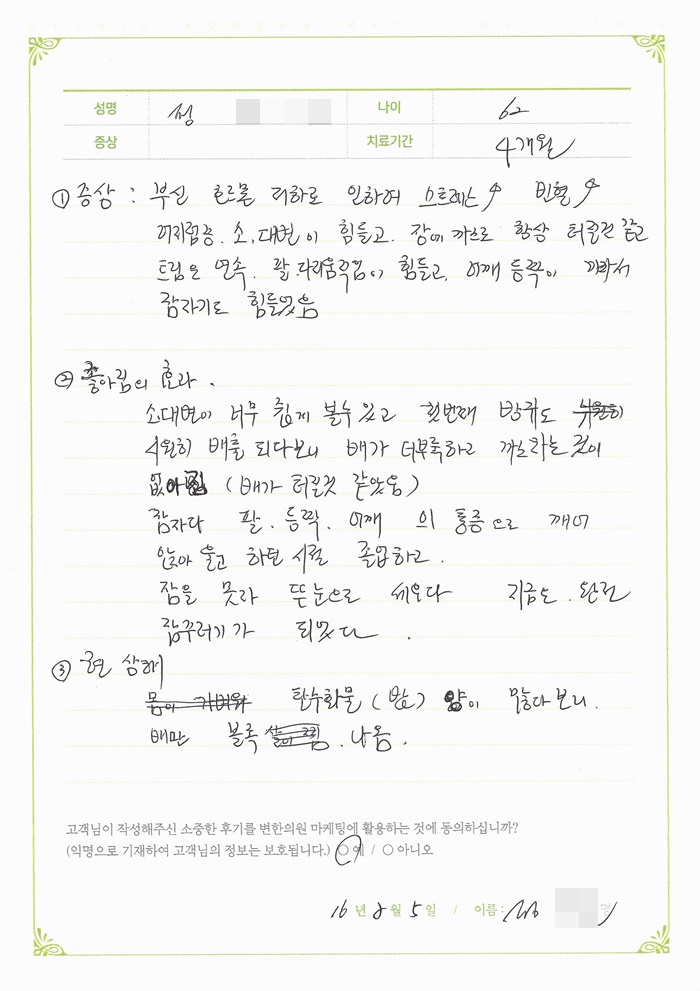 성명 성 나이 62
증상 치료기간 4개월
① 증상 : 부신 호르몬 저하로 인하여 스트레스↑ 빈혈↑
어지럼증. 소.대변이 힘들고. 장에 까스로 항상 터질것 같고
트림은 연속. 팔.다리움직임이 힘들고, 어깨 등쪽이 까라서
잠자기도 힘들었음
② 좋아짐의 효과.
소대변이 너무 쉽게 볼수 있고 첫번째 방귀도
시원히 배출 되다보니 배가 더부룩하고 까스차는 것이
없어짐 (배가 터질것 같았음)
잠자다 팔. 등쪽. 어깨 의 통증으로 깨어
앉아 울고 하던 시절 졸업하고.
잠을 못자 뜬눈으로 세우다 지금은. 완전
잠꾸러기가 되었다.
③ 현 상태
몸이 가벼워 탄수화물 (밥) 양이 많다보니.
배만 볼록 나옴.
고객님이 작성해주신 소중한 후기를 변한의원 마케팅에 활용하는 것에 동의하십니까?
(익명으로 기재하여 고객님의 정보는 보호됩니다.) ○ 예 / ○ 아니오
16 년 8 월 5 일 / 이름 :